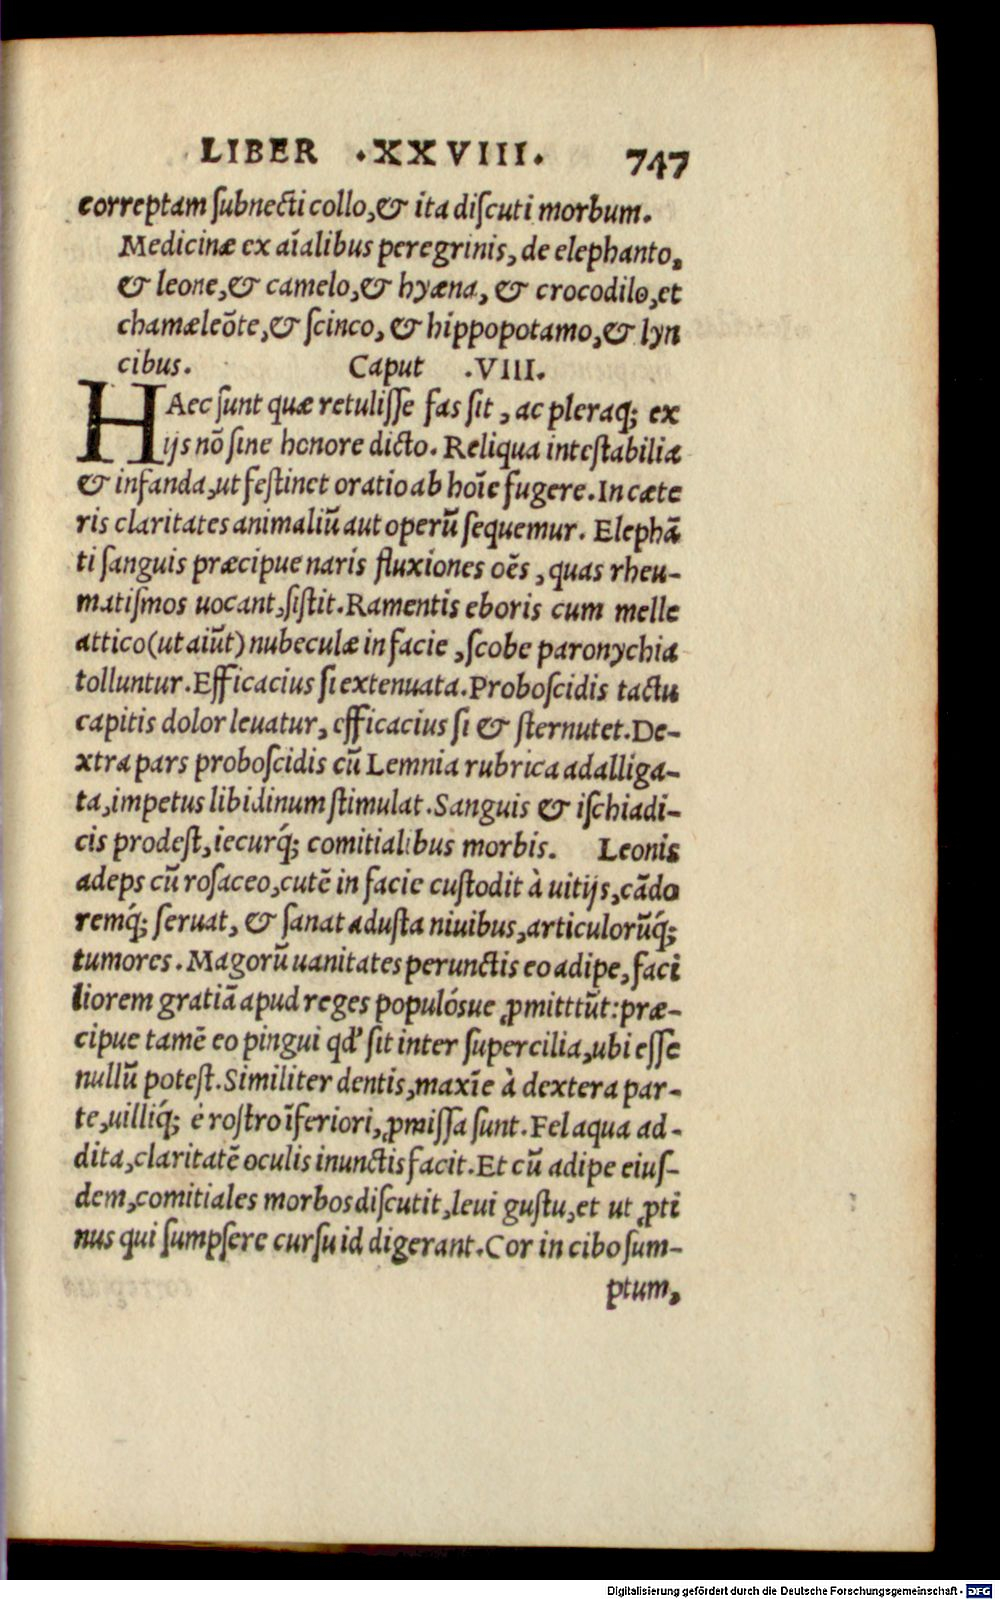 LIBER .XXVIII. 747
correptam ſubnecti collo,& ita diſcuti morbum.
Medicinæ ex aīalibus peregrinis, de elephanto,
& leone,& camelo,& hyæna, & crocodilo,et
chamæleōte,& ſcinco, & hippopotamo,& lyn
cibus. Caput .VIII.
HAec ſunt quæ retuliſſe fas ſit , ac pleraq; ex
ijs nō ſine honore dicto. Reliqua inteſtabilia
& infanda,ut feſtinet oratio ab hoīe fugere.In cæte
ris claritates animaliū aut operū ſequemur. Elephā
ti ſanguis præcipue naris fluxiones oēs , quas rheu-
matiſmos uocant,ſiſtit.Ramentis eboris cum melle
attico(ut aiūt) nubeculæ in facie ,ſcobe paronychia
tolluntur.Efficacius ſi extenuata.Proboſcidis tactu
capitis dolor leuatur, efficacius ſi & ſternutet.De-
xtra pars proboſcidis cū Lemnia rubrica adalliga-
ta,impetus libidinum ſtimulat.Sanguis & iſchiadi-
cis prodeſt,iecurq́; comitialibus morbis. Leonis
adeps cū roſaceo,cutē in facie cuſtodit à uitijs,cādo
remq́; ſeruat, & ſanat aduſta niuibus,articulorūq́;
tumores.Magorū uanitates perunctis eo adipe,faci
liorem gratiā apud reges populósue ꝓmitttūt:præ-
cipue tamē eo pingui qď ſit inter ſupercilia,ubi eſſe
nullū poteſt.Similiter dentis,maxīe à dextera par-
te,uilliq́; è roſtro īferiori,ꝓmiſſa ſunt.Fel aqua ad-
dita,claritatē oculis inunctis facit.Et cū adipe eiuſ-
dem,comitiales morbos diſcutit,leui guſtu,et ut ꝓti
nus qui ſumpſere curſu id digerant.Cor in cibo ſum-
ptum,
Digitalisierung gefördert durch die Deutsche Forschungsgemeinschaft - DFG